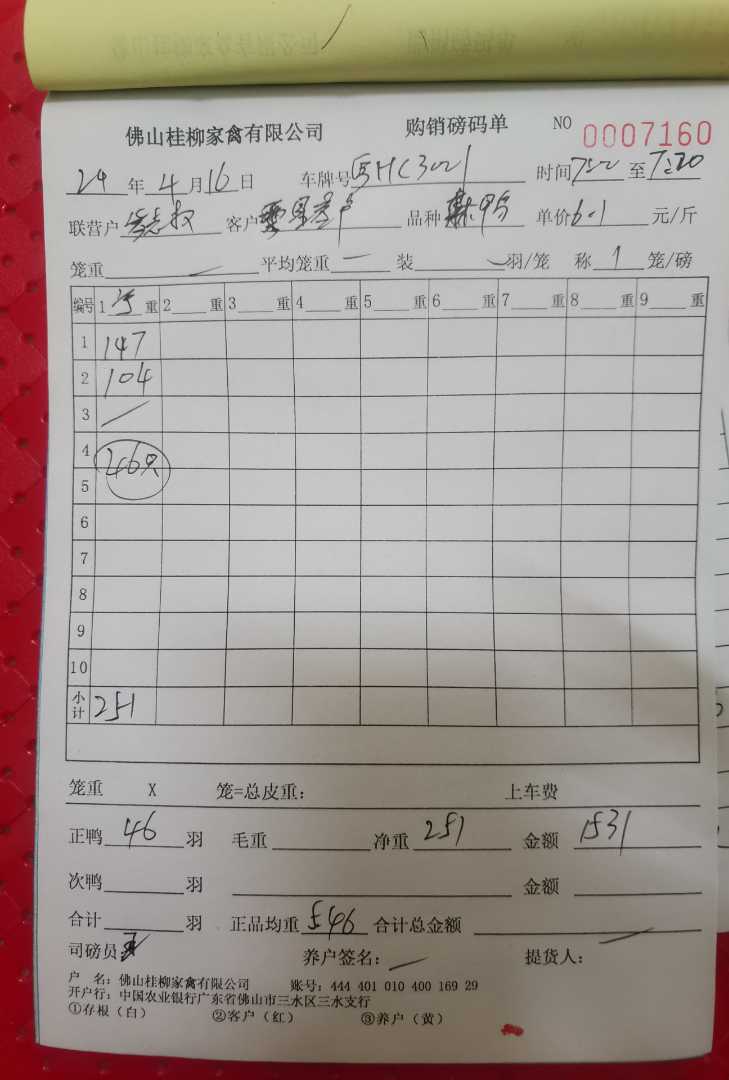 佛山桂柳家禽有限公司 购销磅码单 NO 0007160
24 年 4 月 16 日 车牌号 时间 7:00 至 7:20
联营户 客户 品种 麻鸭 单价 6.1 元/斤
笼重 平均笼重 装 羽/笼 称 1 笼/磅
编号 1 重 2 重 3 重 4 重 5 重 6 重 7 重 8 重 9 重
1 147
2 104
3
4 46只
5
6
7
8
9
10
小计 251
笼重 X 笼=总皮重: 上车费
正鸭 46 羽 毛重 净重 251 金额 1531
次鸭 羽 金额
合计 羽 正品均重 5.46 合计总金额
司磅员 养户签名: 提货人:
户 名: 佛山桂柳家禽有限公司 账号: 444 401 010 400 169 29
开户行: 中国农业银行广东省佛山市三水区三水支行
①存根(白) ②客户(红) ③养户(黄)